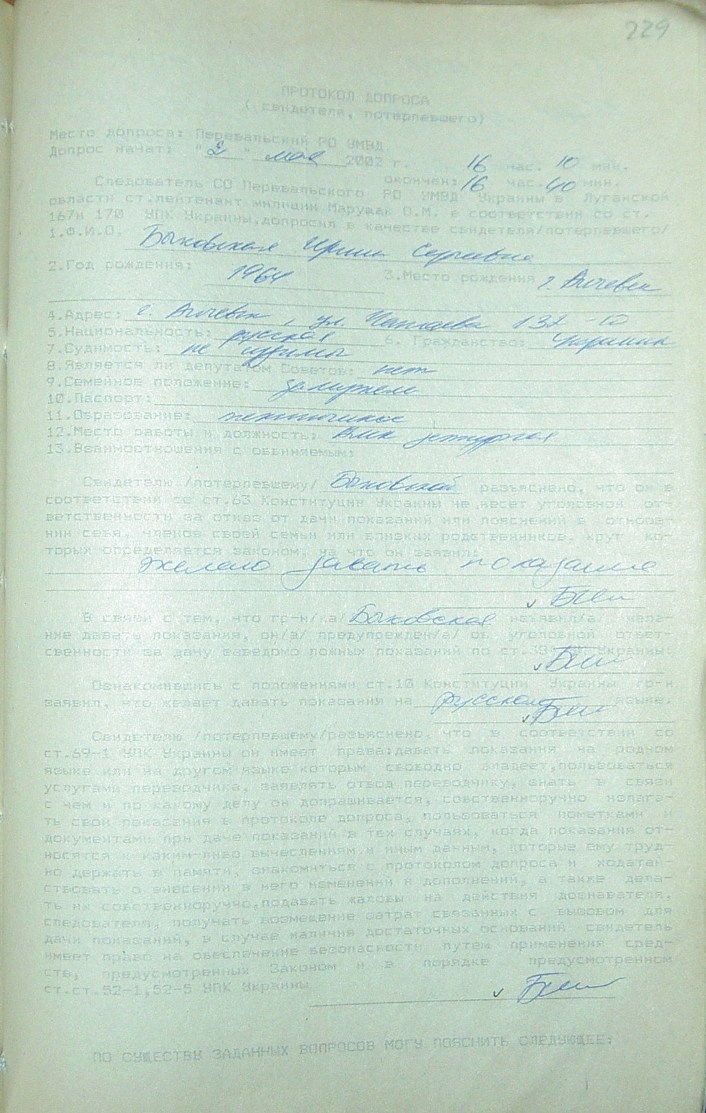 229
ПРОТОКОЛ ДОПРОСА
( свидетеля, потерпевшего)
Место допроса: Перевальский РО УМВД
Допрос начат: "2" мая 2002 г. 16 час. 10 мин.
окончен: 16 час. 40 мин.
Следователь СО Перевальского РО УМВД Украины в Луганской
области ст.лейтенант милиции Марущак О.М. в соответствии со ст.
167и 170 УПК Украины,допросил в качестве свидетеля/потерпевшего/
1.Ф.И.О. Быковская Ирина Сергеевна
2.Год рождения: 1964 3.Место рождения г. Алчевск
4.Адрес: г. Алчевск, ул. Чапаева 137
5.Национальность: русская 6. Гражданство: Украина
7.Судимость: не судима
8.Является ли депутатом Советов: нет
9.Семейное положение: замужем
10.Паспорт:
11.Образование:
12.Место работы и должность:
13.Взаимоотношения с обвиняемым:
Свидетелю /потерпевшему/ Быковской разъяснено, что он в
соответствии со ст.63 Конституции Украины не несет уголовной от-
ветственности за отказ от дачи показаний или пояснений в отноше-
нии себя, членов своей семьи или близких родственников, круг ко-
торых определяется законом, на что он заявил:
желаю давать показания
В связи с тем, что гр-н/ка/ Быковская изъявил/а/ жела-
ние давать показания, он/а/ предупрежден/а/ от уголовной ответ-
свенности за дачу заведомо ложных показаний по ст.384 УК Украины:
Ознакомившись с положениями ст.10 Конституции Украины гр-н
заявил, что желает давать показания на русском языке.
Свидетелю /потерпевшему/разъяснено, что в соответствии со
ст.69-1 УПК Украины он имеет права:давать показания на родном
языке или на другом языке которым свободно владеет,пользоваться
услугами переводчика, заявлять отвод переводчику, знать в связи
с чем и по какому делу он допрашивается, собственноручно излага-
ть свои показания в протоколе допроса, пользоваться пометками и
документами при даче показаний в тех случаях, когда показания от-
носятся к каким-либо вычеслениям и иным данным, которые ему труд-
но держать в памяти, знакомиться с протоколом допроса и ходатай-
ствовать о внесении в него изменений и дополнений, а также дела-
ть их собственноручно,подавать жалобы на действия дознавателя,
следователя, получать возмещение затрат связанных с вызовом для
дачи показаний, в случае наличия достаточных оснований свидетель
имеет право на обеспечение безопасности путем применения сред-
ств, предусмотренных Законом и в порядке предусмотренном
ст.ст.52-1,52-5 УПК Украины
ПО СУЩЕСТВУ ЗАДАННЫХ ВОПРОСОВ МОГУ ПОЯСНИТЕ СЛЕДУЮЩЕЕ: